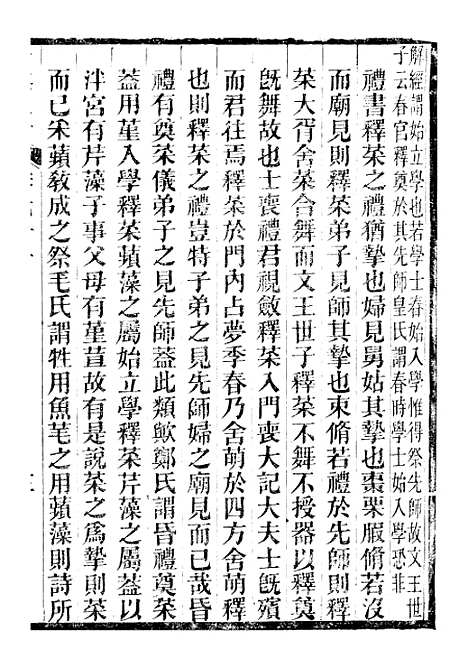 解經謂始立學也若學士春始入學惟得祭先師故文王世
子云春官釋奠於其先師皇氏謂春時學士始入學恐非
禮書釋菜之禮猶摯也婦見舅姑其摯也棗栗腶脩若沒
而廟見則釋菜弟子見師其摯也束脩若禮於先師則釋
菜大胥舍菜合舞而文王世子釋菜不舞不授器以釋奠
旣舞故也士喪禮君視斂釋菜入門喪大記大夫士旣殯
而君往焉釋菜於門內占夢季春乃舍萌於四方舍萌釋
也則釋菜之禮豈特子弟之見先師婦之廟見而已哉昏
禮有奠菜儀弟子之見先師葢此類歟鄭氏謂昏禮奠菜
葢用堇入學釋菜蘋藻之屬始立學釋菜芹藻之屬葢以
泮宮有芹藻子事父母有堇荁故有是說菜之爲摯則菜
而已采蘋敎成之祭毛氏謂牲用魚芼之用蘋藻則詩所